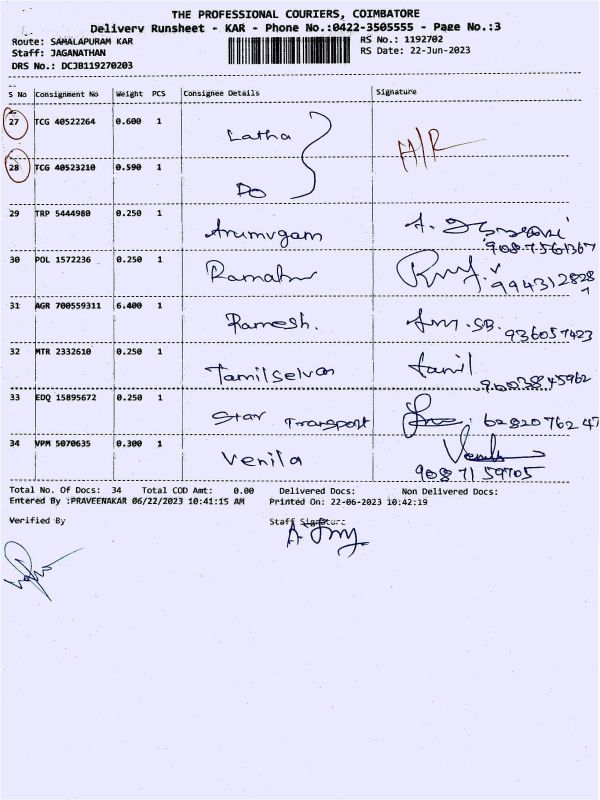 THE PROFESSIONAL COURIERS, COIMBATORE
Delivery Runsheet - KAR - Phone No.:0422-3505555 - Page No.:3
Route: SAMALAPURAM KAR RS No.: 1192702
Staff: JAGANATHAN RS Date: 22-Jun-2023
DRS No.: DCJB119270203
S No Consignment No Weight PCS Consignee Details Signature
27 TCG 40522264 0.600 1 Latha
28 TCG 40523210 0.590 1 Do
29 TRP 5444980 0.250 1 Arumugam
30 POL 1572236 0.250 1
31 AGR 700559311 6.400 1 Ramesh. 936057423
32 MTR 2332610 0.250 1 Tamilselvan tamil
33 EDQ 15895672 0.250 1 Star Transport 6282076247
34 VPM 5070635 0.300 1 Venila
9087159705
Total No. Of Docs: 34 Total COD Amt: 0.00 Delivered Docs: Non Delivered Docs:
Entered By :PRAVEENAKAR 06/22/2023 10:41:15 AM Printed On: 22-06-2023 10:42:19
Verified By Staff Signature